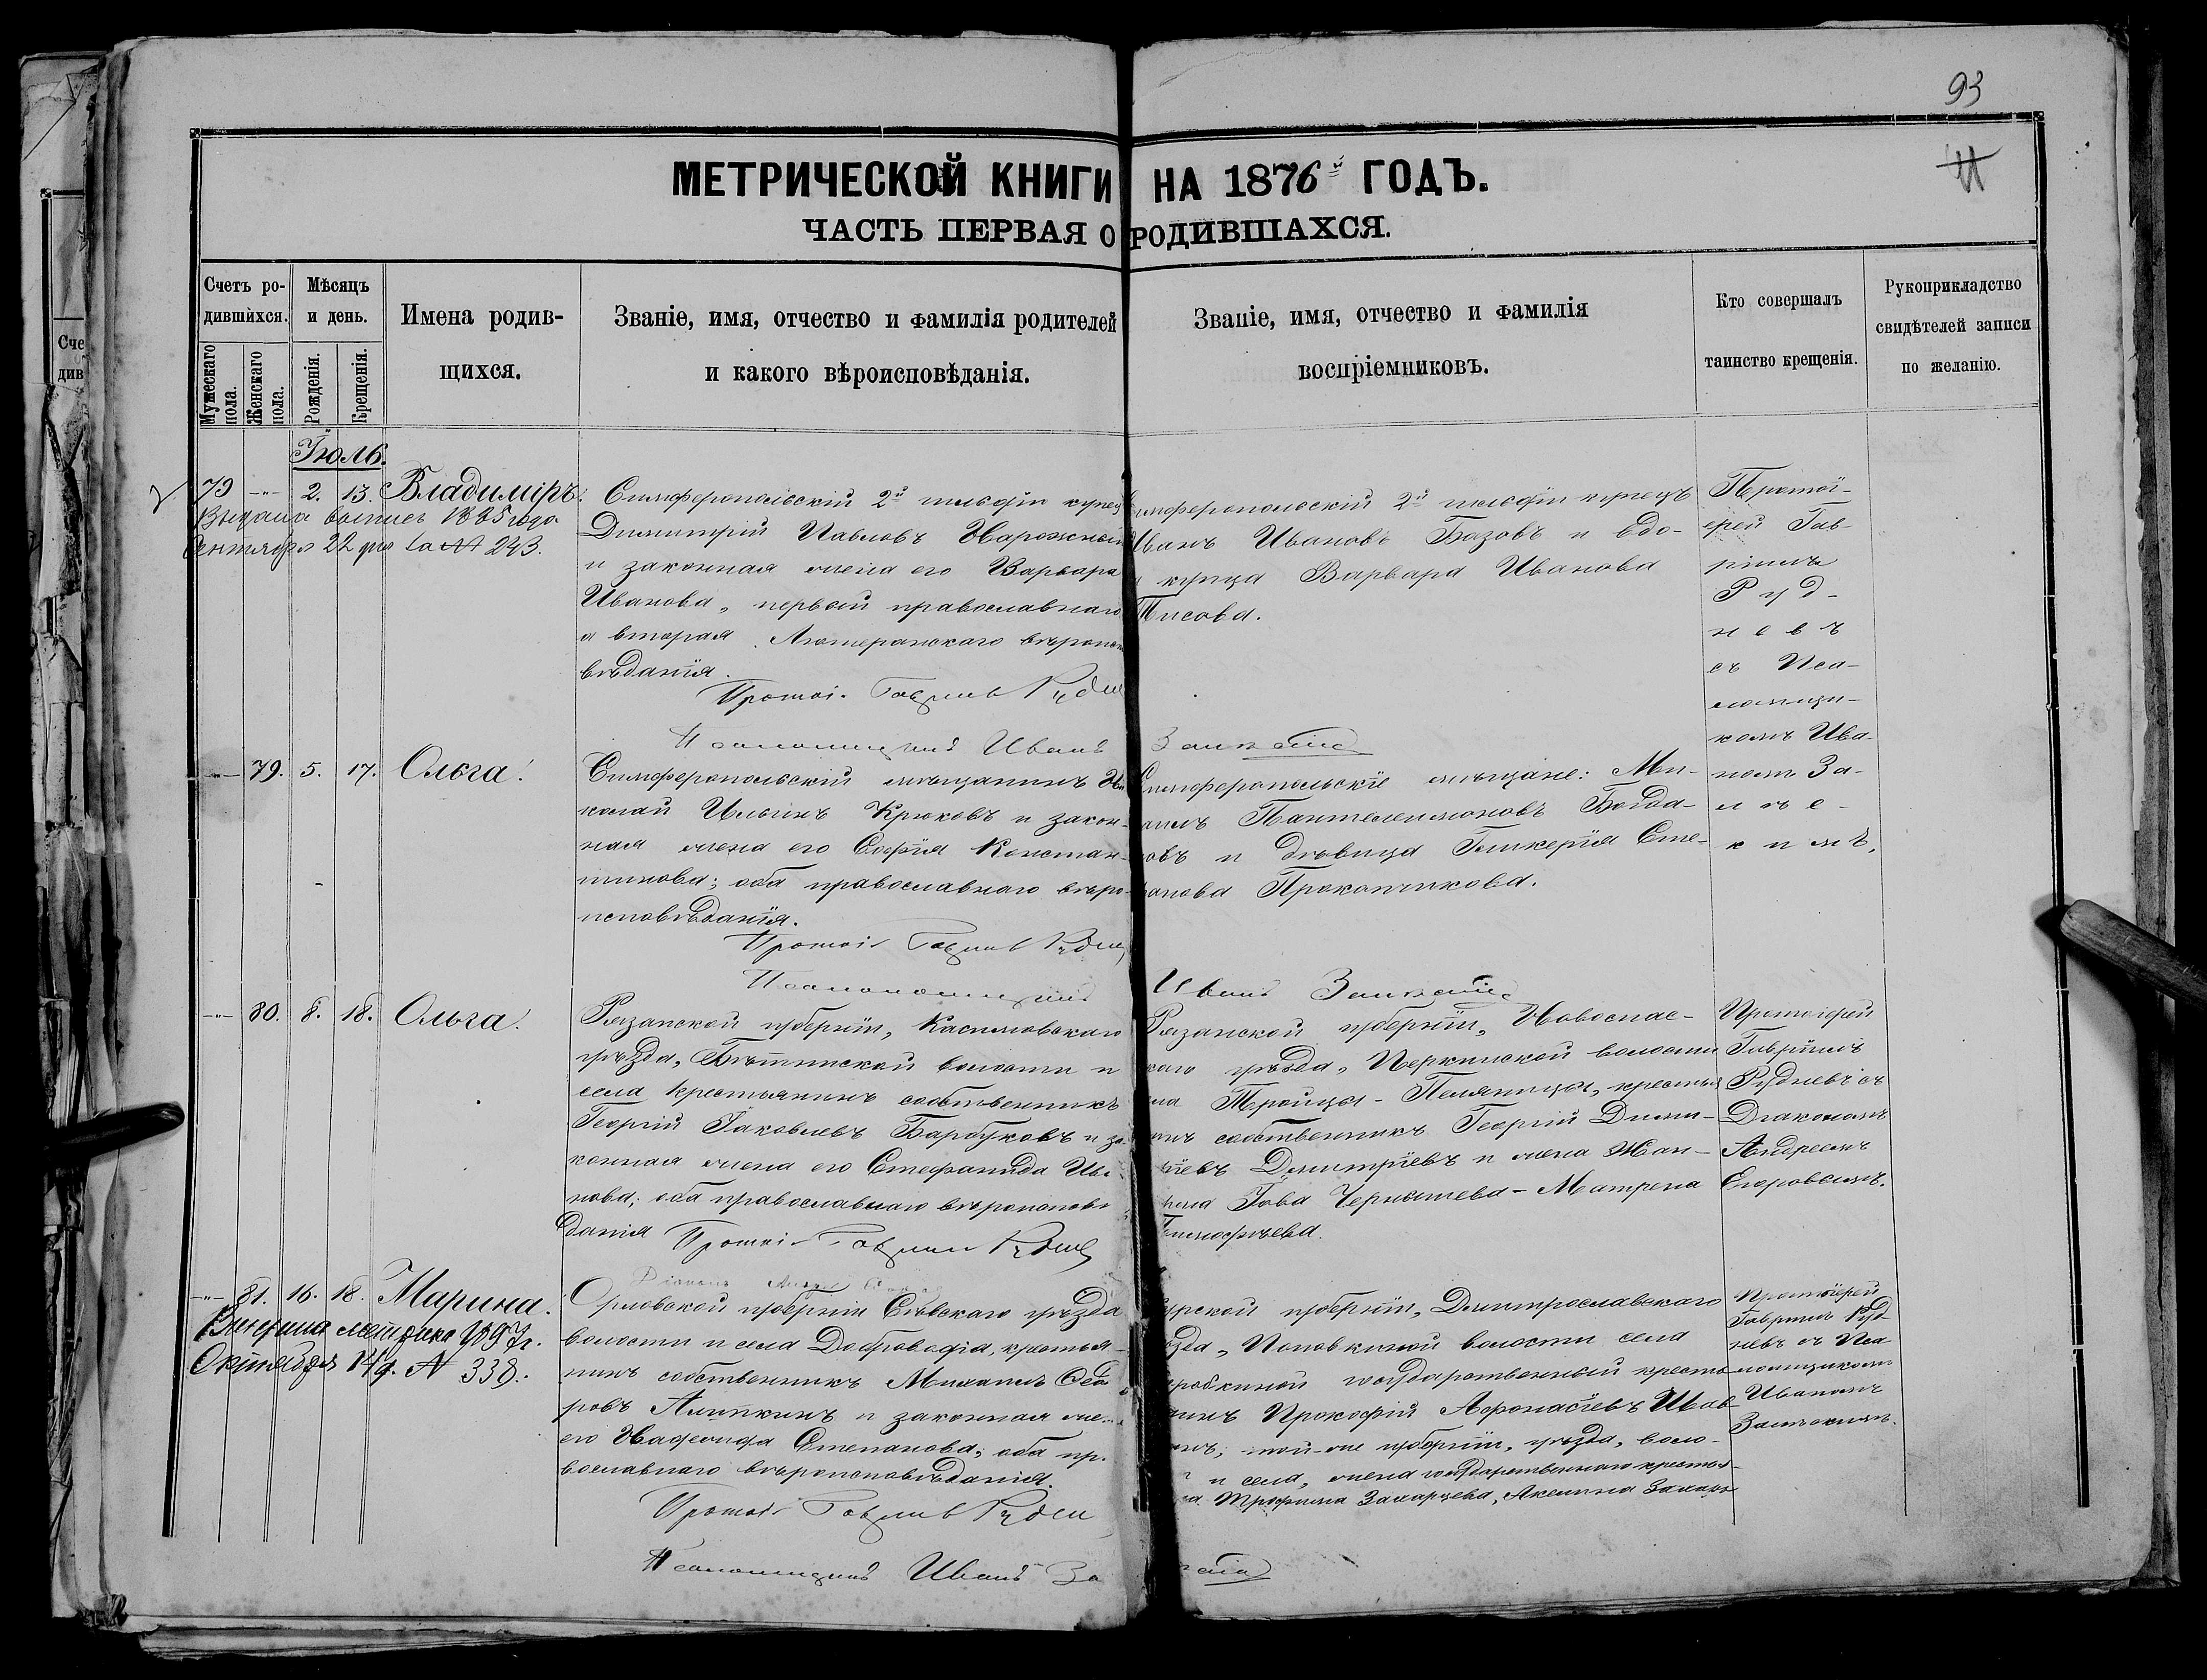 93
МЕТРИЧЕСКОЙ КНИГИ НА 1876й ГОДЪ.
ЧАСТЬ ПЕРВАЯ О РОДИВШАХСЯ.
Счетъ ро-
дившихся.
Мужескаго пола.
Женскаго пола.
Мѣсяцъ
и день.
Рожденія.
Крещенія.
Имена родив-
щихся.
Званіе, имя, отчество и фамилія родителей
и какого вѣроисповѣданія.
Званіе, имя, отчество и фамилія
воспріемниковъ.
Кто совершалъ
таинство крещенія.
Рукоприкладство
свидѣтелей записи
по желанію.
Іюль.
79 -"- 2. 13. Владиміръ.
Выдана выпись 1885 года
Сентября 22 дня за № 243.
Симферопольскій 2й гильдіи купец
Димитрій Павловъ
и законная жена его Варвара
Иванова, первый православнаго
а вторая Лютеранскаго вѣроиспо
вѣданія.
Протоі. Гавриил Рудне
Псаломщикъ Иванъ
имферопольскій 2й гильдіи купецъ
Иванъ Ивановъ Базовъ и вдо-
а купца Варвара Иванова
Писова.
Протоі-
ерей Гав-
ріилъ
Руд-
невъ
съ Пса-
ломщи-
комъ Ива-
номъ За-
-"- 79. 5. 17. Ольга.
Симферопольскій мѣщанинъ Ни
колай Ильинъ Крюковъ и закон-
ная жена его Софія Констан-
тинова; оба православнаго вѣро-
исповѣданія.
Протоі Гавриил Рудне
Псаломщикъ
Симферопольскіе мѣщане: Ми-
аилъ Пантелеимоновъ Богда-
новъ и дѣвица Гликерія Сте-
панова Прокопчикова.
Иванъ
-"- 80. 8. 18. Ольга.
Рязанской губерніи, Касимовскаго
уѣзда, волости и
села крестьянинъ собственникъ
Георгій Іаковлевъ Барбуковъ и за-
конная жена его Стефанида Ива
нова; оба православнаго вѣроисповѣ
данія
Протоі Гавриил Рудне
Рязанской губерніи, Новоспас-
каго уѣзда, Перкинской волости
ела Троицы-Пеляницы, крестья
инъ собственникъ Георгій Дими-
тріевъ Димитріевъ и жена
Іова Чернышева - Матрена
Тимофѣева.
Протоіерей
Гавріилъ
Рудневъ съ
Діакономъ
Андреемъ
Егоровымъ.
-"- 81. 16. 18. Марина.
метрика 1897г.
Октября 14д. № 338.
Орловской губерніи Сѣвскаго уѣзда
волости и села Доброводія, крестья-
нинъ собственникъ Михаилъ Ѳедо
ровъ Алипкинъ и законная же
его Надежда Степанова; оба пр.
вославнаго вѣроисповѣданія.
Протоі Гавриил Рудне
Псаломщикъ Иванъ За
урской губерніи, Димитрославскаго
ѣзда, Поповкиной волости села
государственный кресть
нинъ Прокофій Афонасіевъ
той-же губерніи, уѣзда, воло-
и села, жена государственнаго крестья-
на Трофима Захарцева, Акелина Захарц
Протоіерей
Гавріилъ Руд
невъ съ Пса
ломщикомъ
Иваномъ